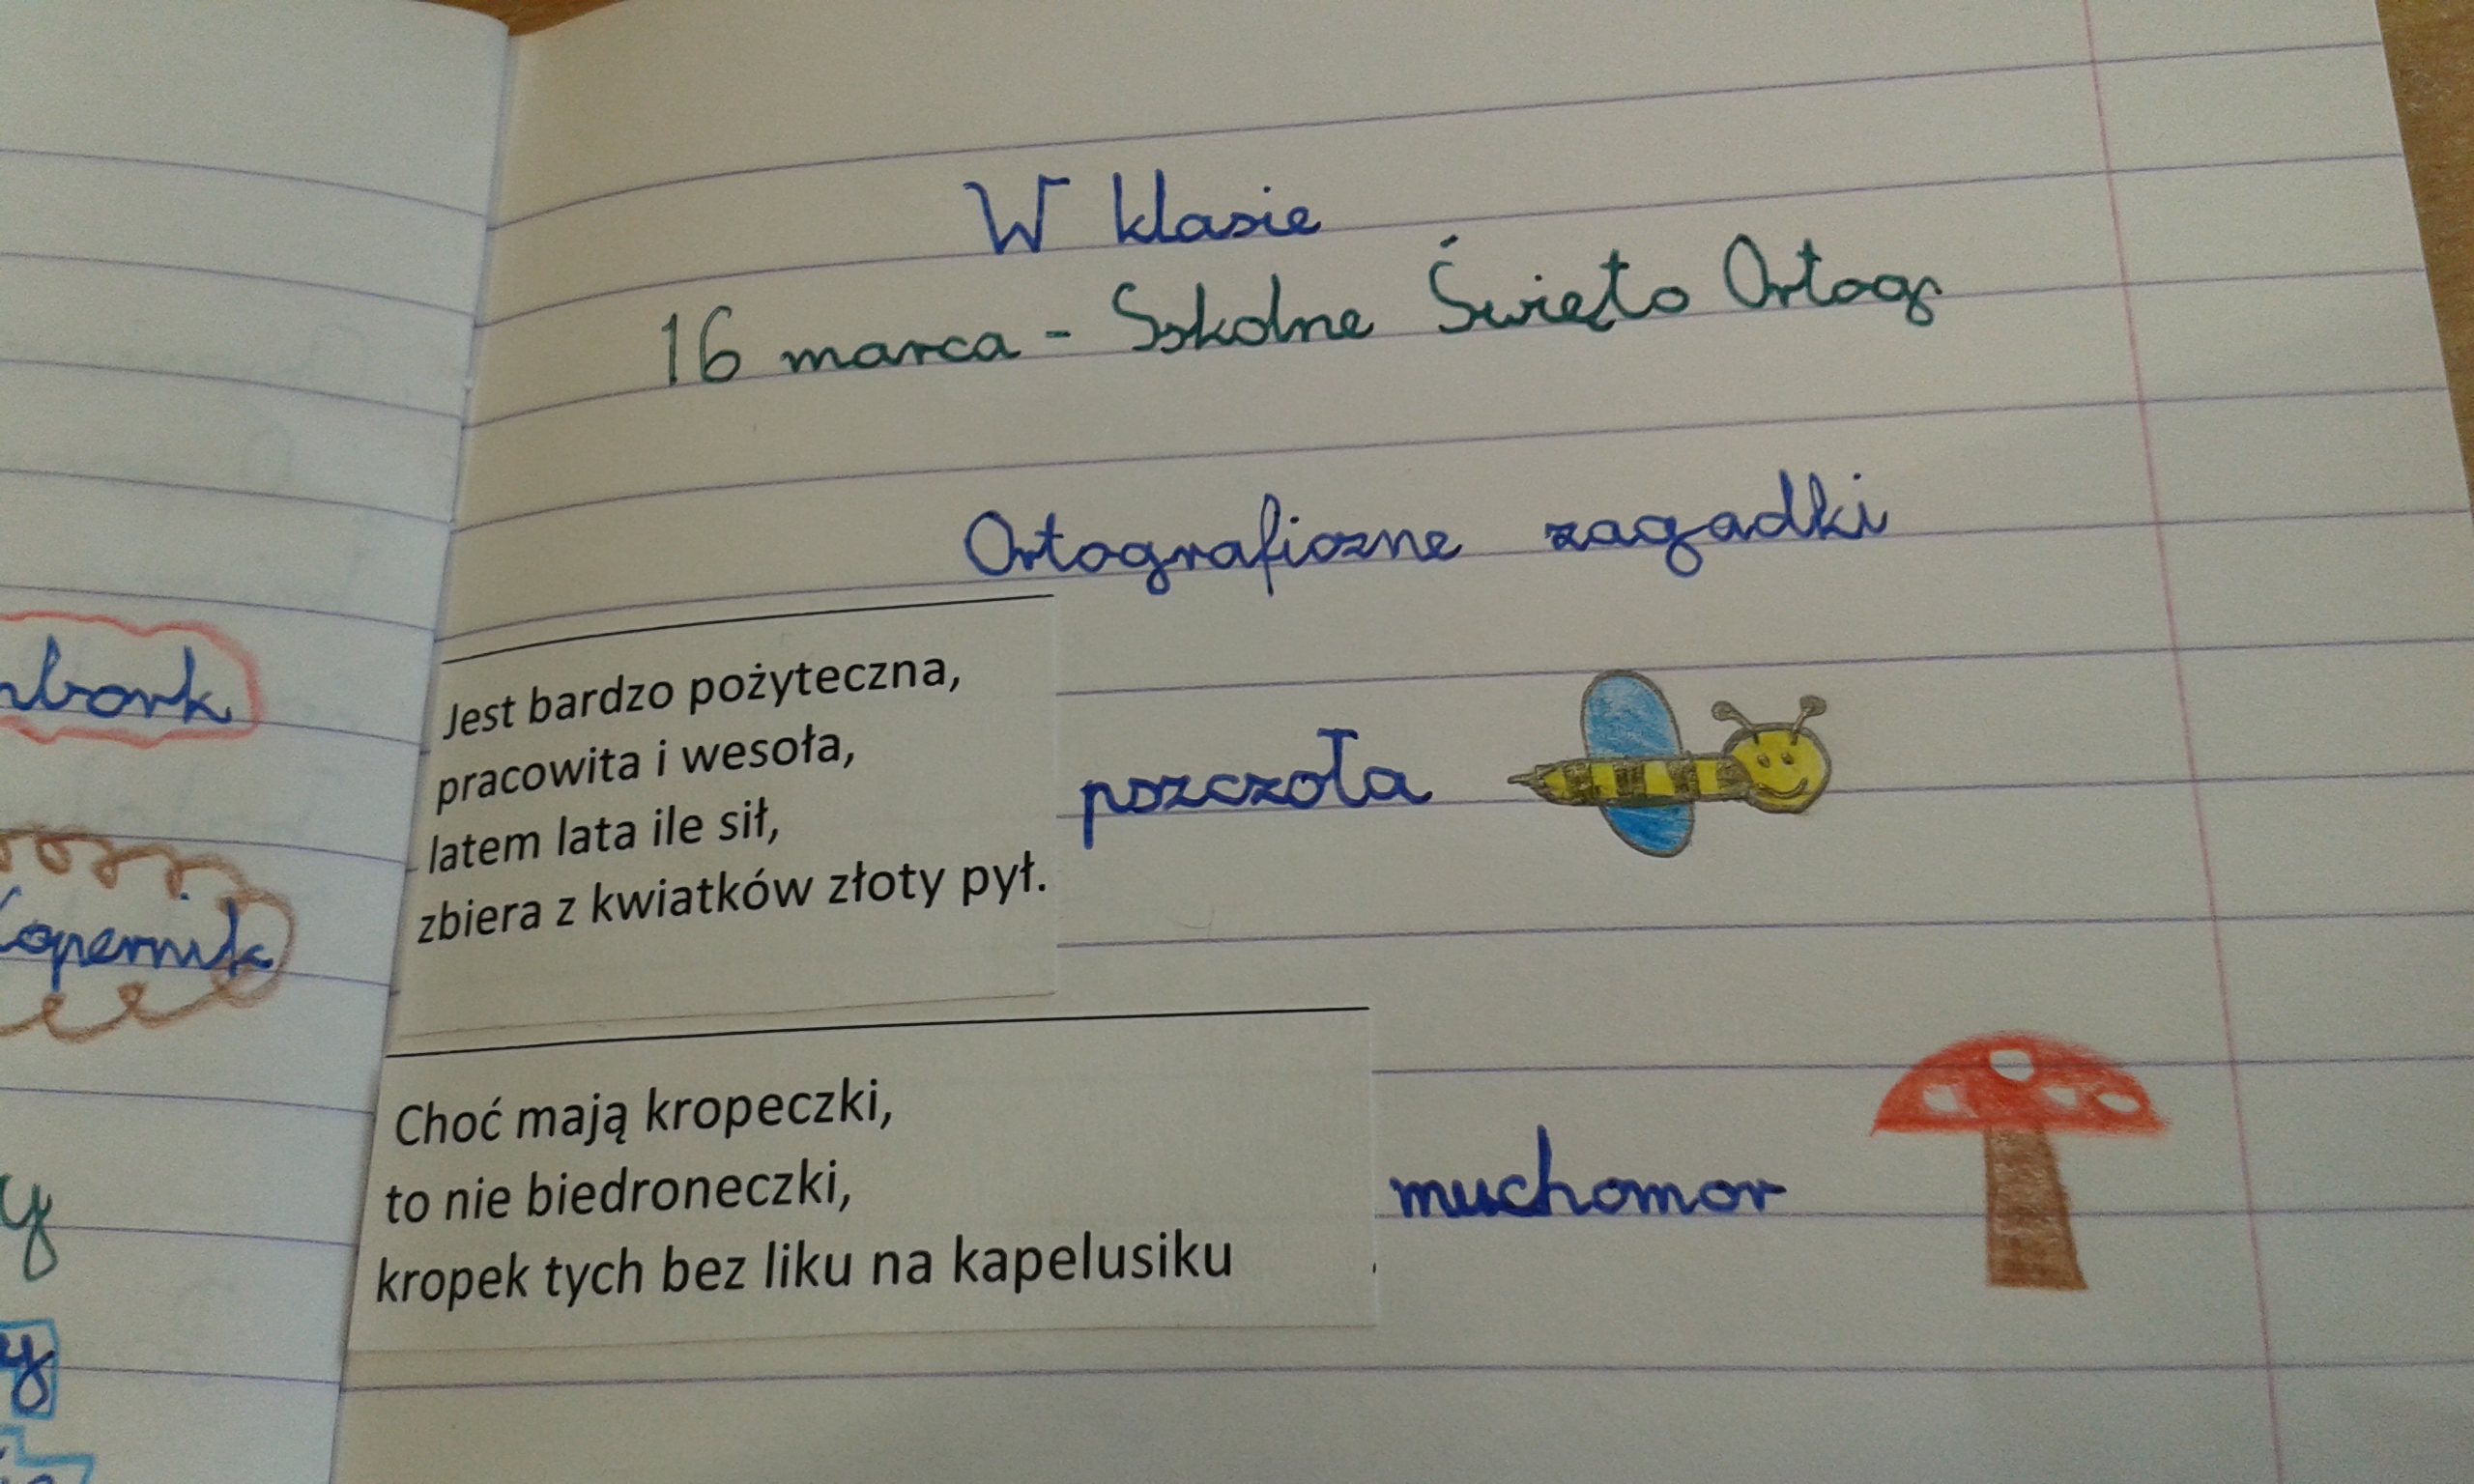 W klasie
16 marca - Szkolne Święto Ortog
Ortograficzne zagadki
Jest bardzo pożyteczna,
pracowita i wesoła,
latem lata ile sił,
zbiera z kwiatków złoty pył.
pszczoła
Choć mają kropeczki,
to nie biedroneczki,
kropek tych bez liku na kapelusiku
muchomor
Kopernik
y
y